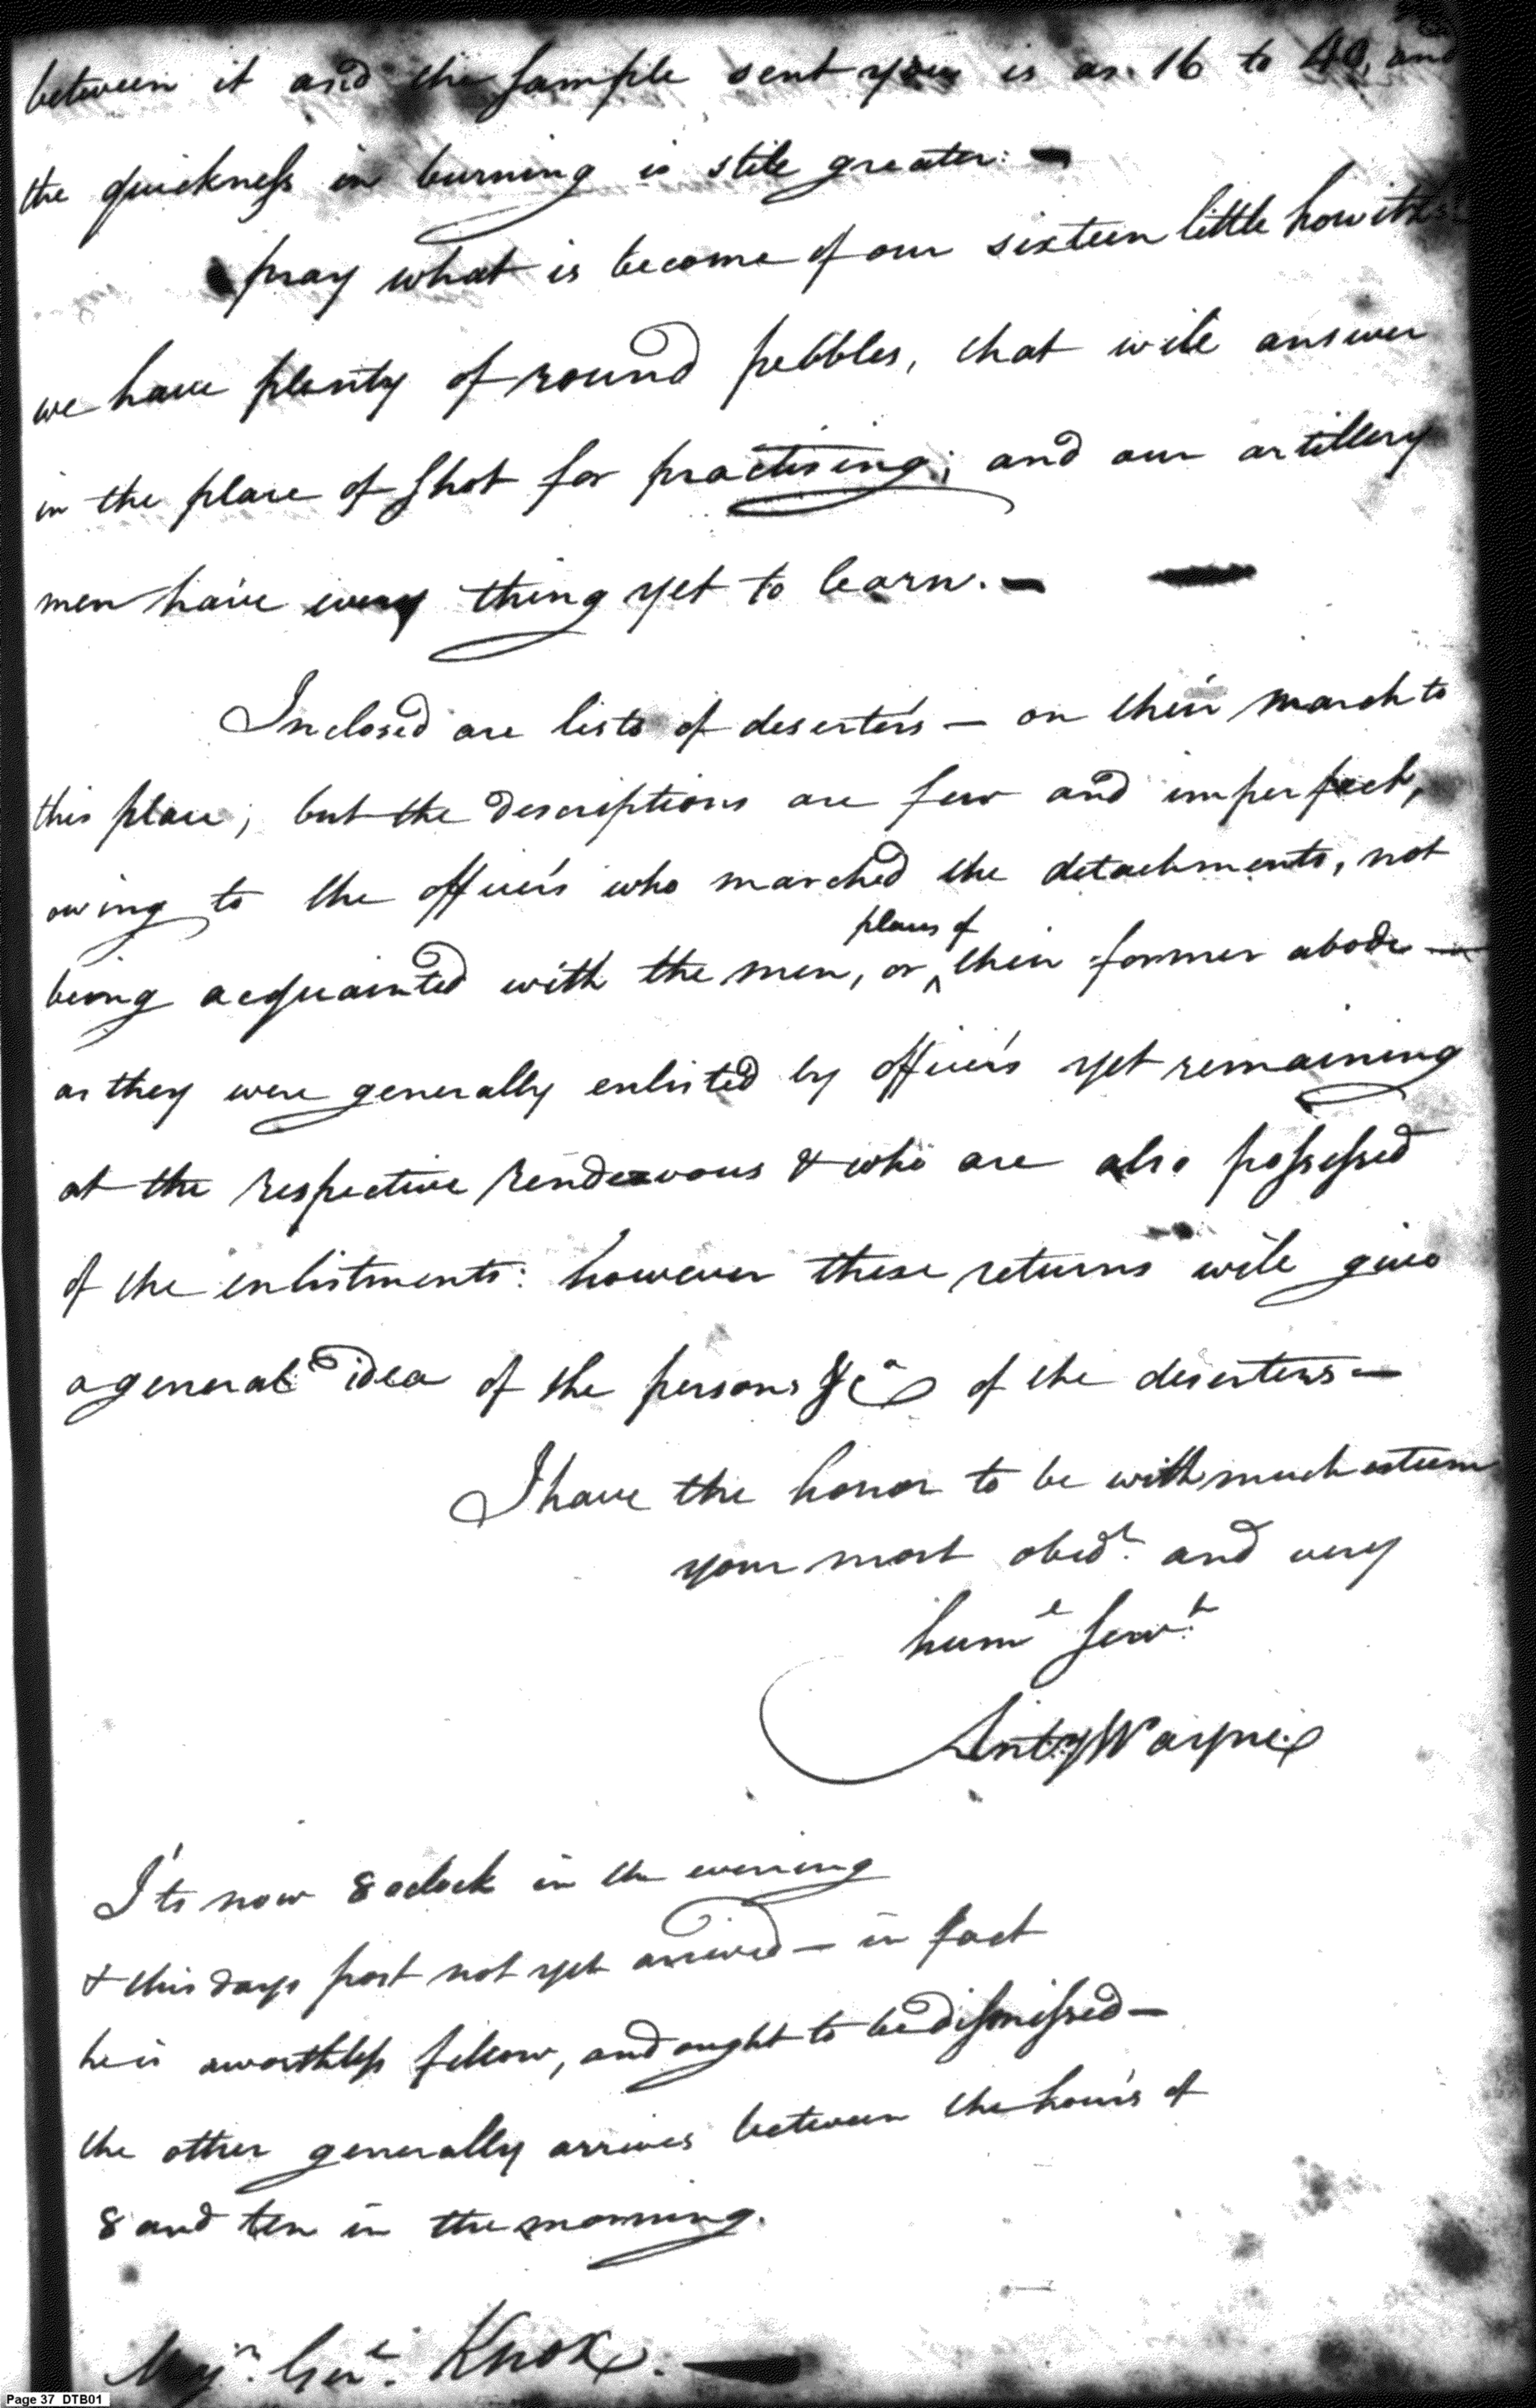 between it and the sample sent you is as 16 to 40, and
the quickness in burning is still greater: —
pray what is become of our sixteen little howitzs
we have plenty of round pebbles, that will answer
in the place of shot for practising; and our artillery
men have every thing yet to learn. —
Inclosed are lists of deserters — on their march to
this place; but the descriptions are few and imperfect,
owing to the officers who marched the detachments, not
places of
being acquainted with the men, or ^ their former abode —
as they were generally enlisted by officers yet remaining
at the respective rendezvous & who are also possessed
of the enlistments: however these returns will give
a general idea of the persons &c of the deserters —
I have the honor to be with much esteem
your most obedt. and very
huml servt.
Anty Wayne
I'ts now 8 oclock in the evening
& this days post not yet arrived — in fact
he is a worthless fellow, and ought to be dismissed —
the other generally arrives between the hours of
8 and ten in the morning.
Majr. Genl. Knox. —
Page 37 DTB01